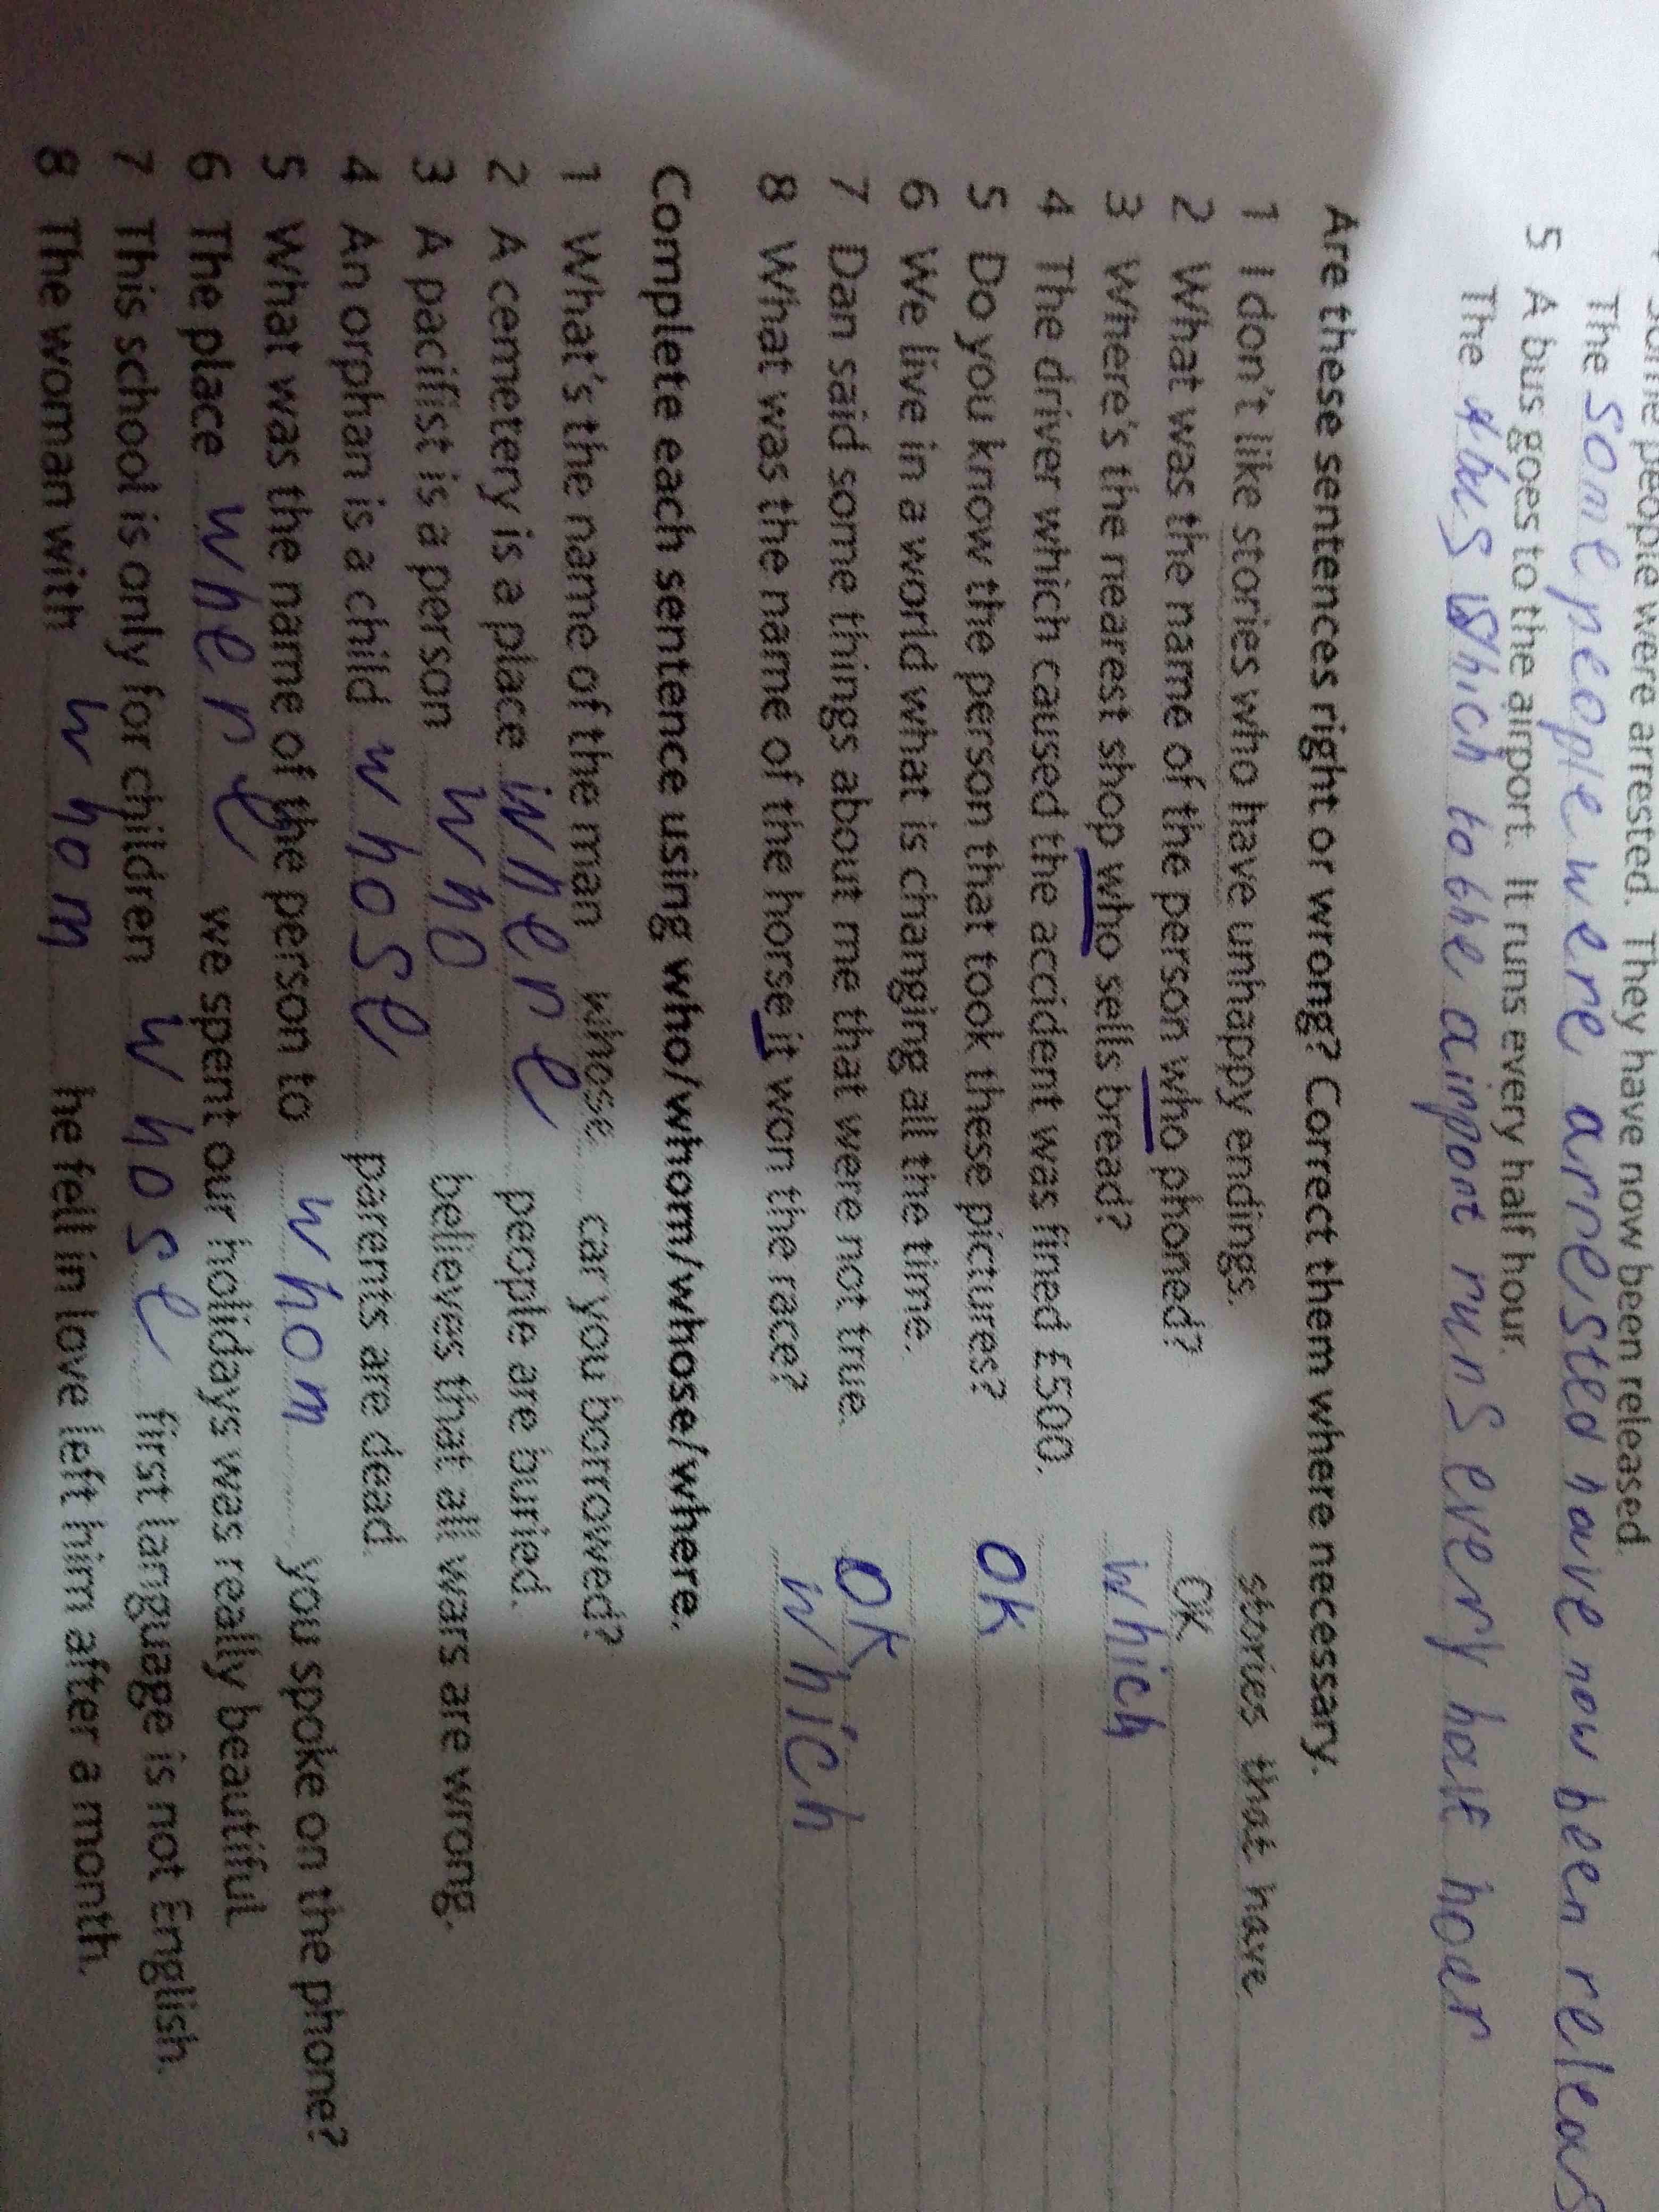 Some people were arrested. They have now been released.
The some people were arrested have now been releas
5 A bus goes to the airport. It runs every half hour.
The bus which to the airport runs every half hour
Are these sentences right or wrong? Correct them where necessary.
1 I don't like stories who have unhappy endings. stories that have
2 What was the name of the person who phoned? OK
3 Where's the nearest shop who sells bread? which
4 The driver which caused the accident was fined £500.
5 Do you know the person that took these pictures? OK
6 We live in a world what is changing all the time.
7 Dan said some things about me that were not true. OK
8 What was the name of the horse it won the race? which
Complete each sentence using who/whom/whose/where.
1 What's the name of the man whose car you borrowed?
2 A cemetery is a place where people are buried.
3 A pacifist is a person who believes that all wars are wrong.
4 An orphan is a child whose parents are dead.
5 What was the name of the person to whom you spoke on the phone?
6 The place where we spent our holidays was really beautiful.
7 This school is only for children whose first language is not English.
8 The woman with whom he fell in love left him after a month.